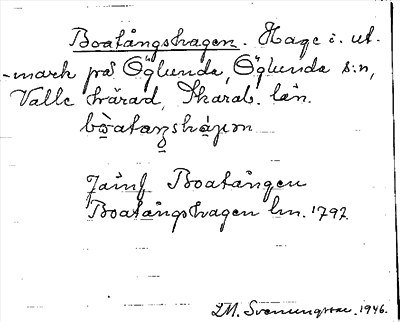 Boatångshagen. Hage i. ut-
-mark på Öglunda, Öglunda s:n,
Valle härad, Skarab. län.
Jämf Boatången
Boatångshagen lm. 1792
LM. Svenungsson. 1946.